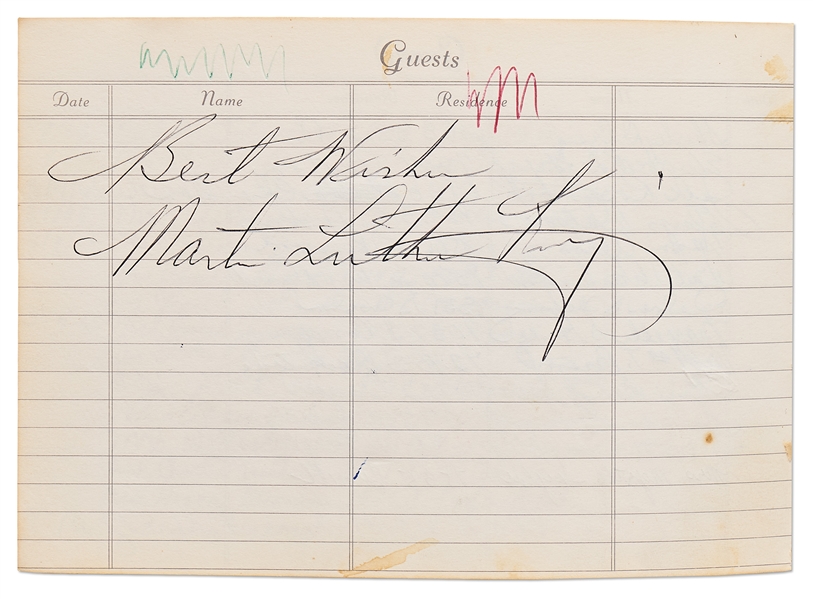 Guests
Date Name Residence
Best Wishes
Martin Luther King